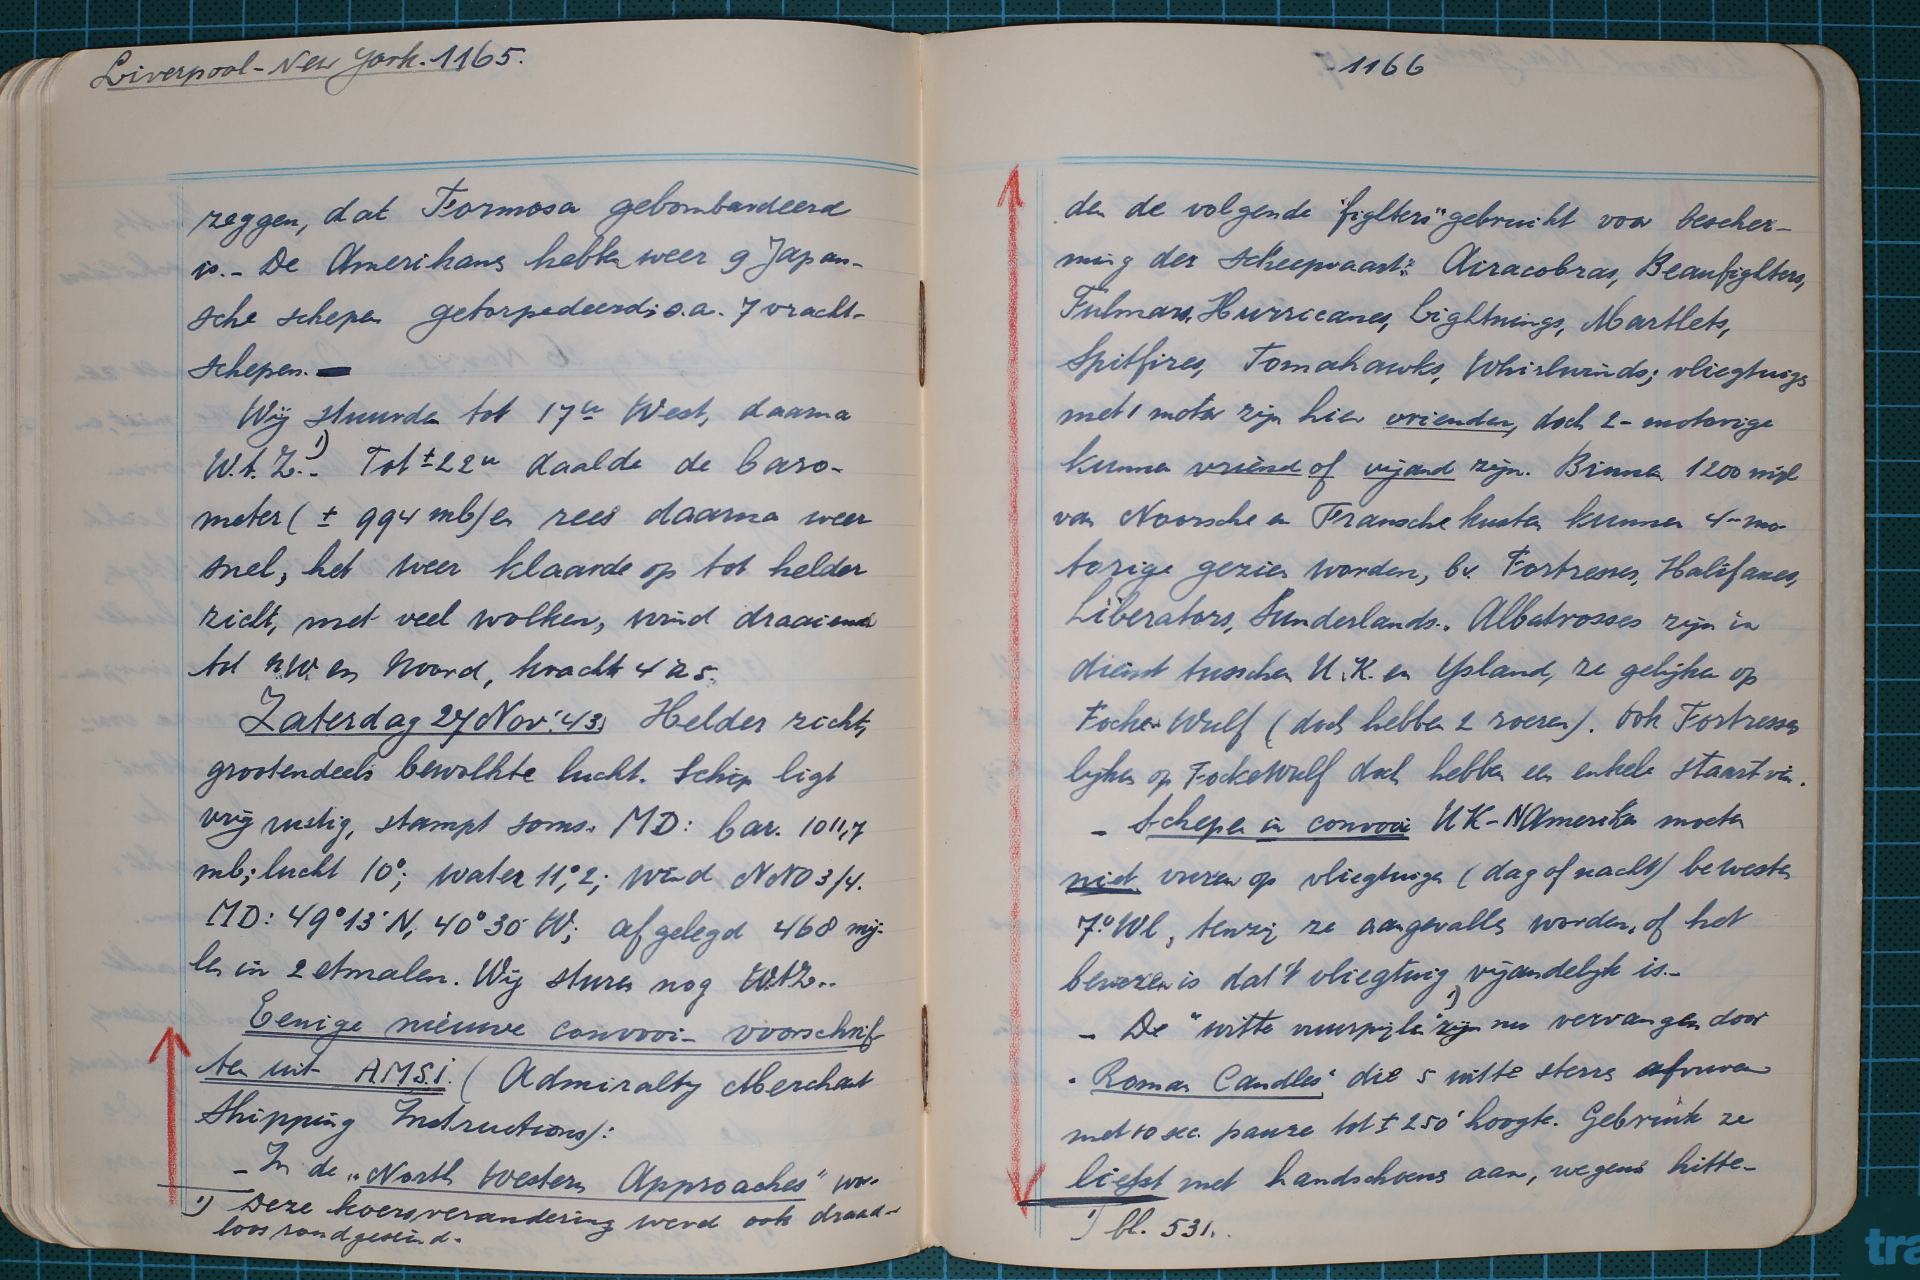 Liverpool-New York. 1165.
zeggen, dat Formosa gebombardeerd
is.- De Amerikans hebben weer 9 Japan-
sche schepen getorpedeerd; o.a. 7 vracht-
schepen.-
Wij stuurden tot 17u West, daarna
W.t.Z.¹).- Tot ± 22u daalde de baro-
meter (± 994 mb) en rees daarna weer
snel, het weer klaarde op tot helder
zicht, met veel wolken, wind draaiend
tot NW en Noord, kracht 4 à 5.
Zaterdag 27 Nov. '43. Helder zicht,
grootendeels bewolkte lucht. Schip ligt
vrij rustig, stampt soms. MD: bar. 1011,7
mb; lucht 10°; water 11°,2; wind NNO 3/4.
MD: 49°13' N, 40°30' W; afgelegd 468 mij-
len in 2 etmalen. Wij sturen nog WtZ..
Eenige nieuwe convooi- voorschrif-
ten uit A.M.S.I. (Admiralty Merchant
Shipping Instructions):
- In de „North Western Approaches" wor-
¹) Deze koersverandering werd ook draad-
loos rondgeseind.-
1166
den de volgende "fighters" gebruikt voor bescher-
ming der scheepvaart: Airacobras, Beaufighters,
Fulmars, Hurricanes, Lightnings, Martlets,
Spitfires, Tomahawks, Whirlwinds; vliegtuigs
met 1 motor zijn hier vrienden, doch 2-motorige
kunnen vriend of vijand zijn. Binnen 1200 mijl
van Noorsche en Fransche kusten kunnen 4-mo-
torige gezien worden, bv. Fortresses, Halifaxes,
Liberators, Sunderlands. Albatrosses zijn in
dienst tusschen U.K. en IJsland, ze gelijken op
Focke Wulf (doch hebben 2 roeren). Ook Fortresses
lijken op Focke Wulf doch hebben een enkele staartvin.
- Schepen in convooi UK-NAmerika moeten
niet vuren op vliegtuigen (dag of nacht) bewesten
7° WL, tenzij ze aangevallen worden, of het
bewezen is dat 't vliegtuig vijandelijk is.-
- De "witte vuurpijlen"¹) zijn nu vervangen door
"Roman Candles" die 5 witte sterren afvuren
met 10 sec. pauze tot ± 250' hoogte. Gebruik ze
liefst met handschoens aan, wegens hitte-
¹) bl. 531.
tra